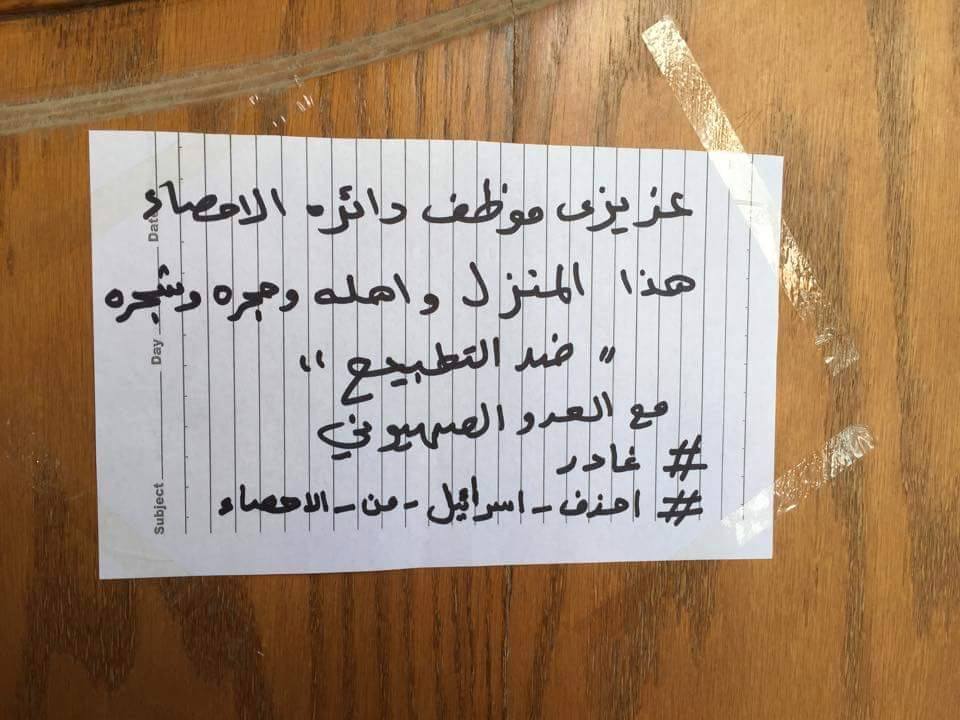 عزيزى موظف دائره الاحصاء
هذا المنزل واهله وحجره وشجره
"ضد التطبيع"
مع العدو الصهيوني
# غادر
# احذف - اسرائيل - من - الاحصاء
Subject
Day
Date